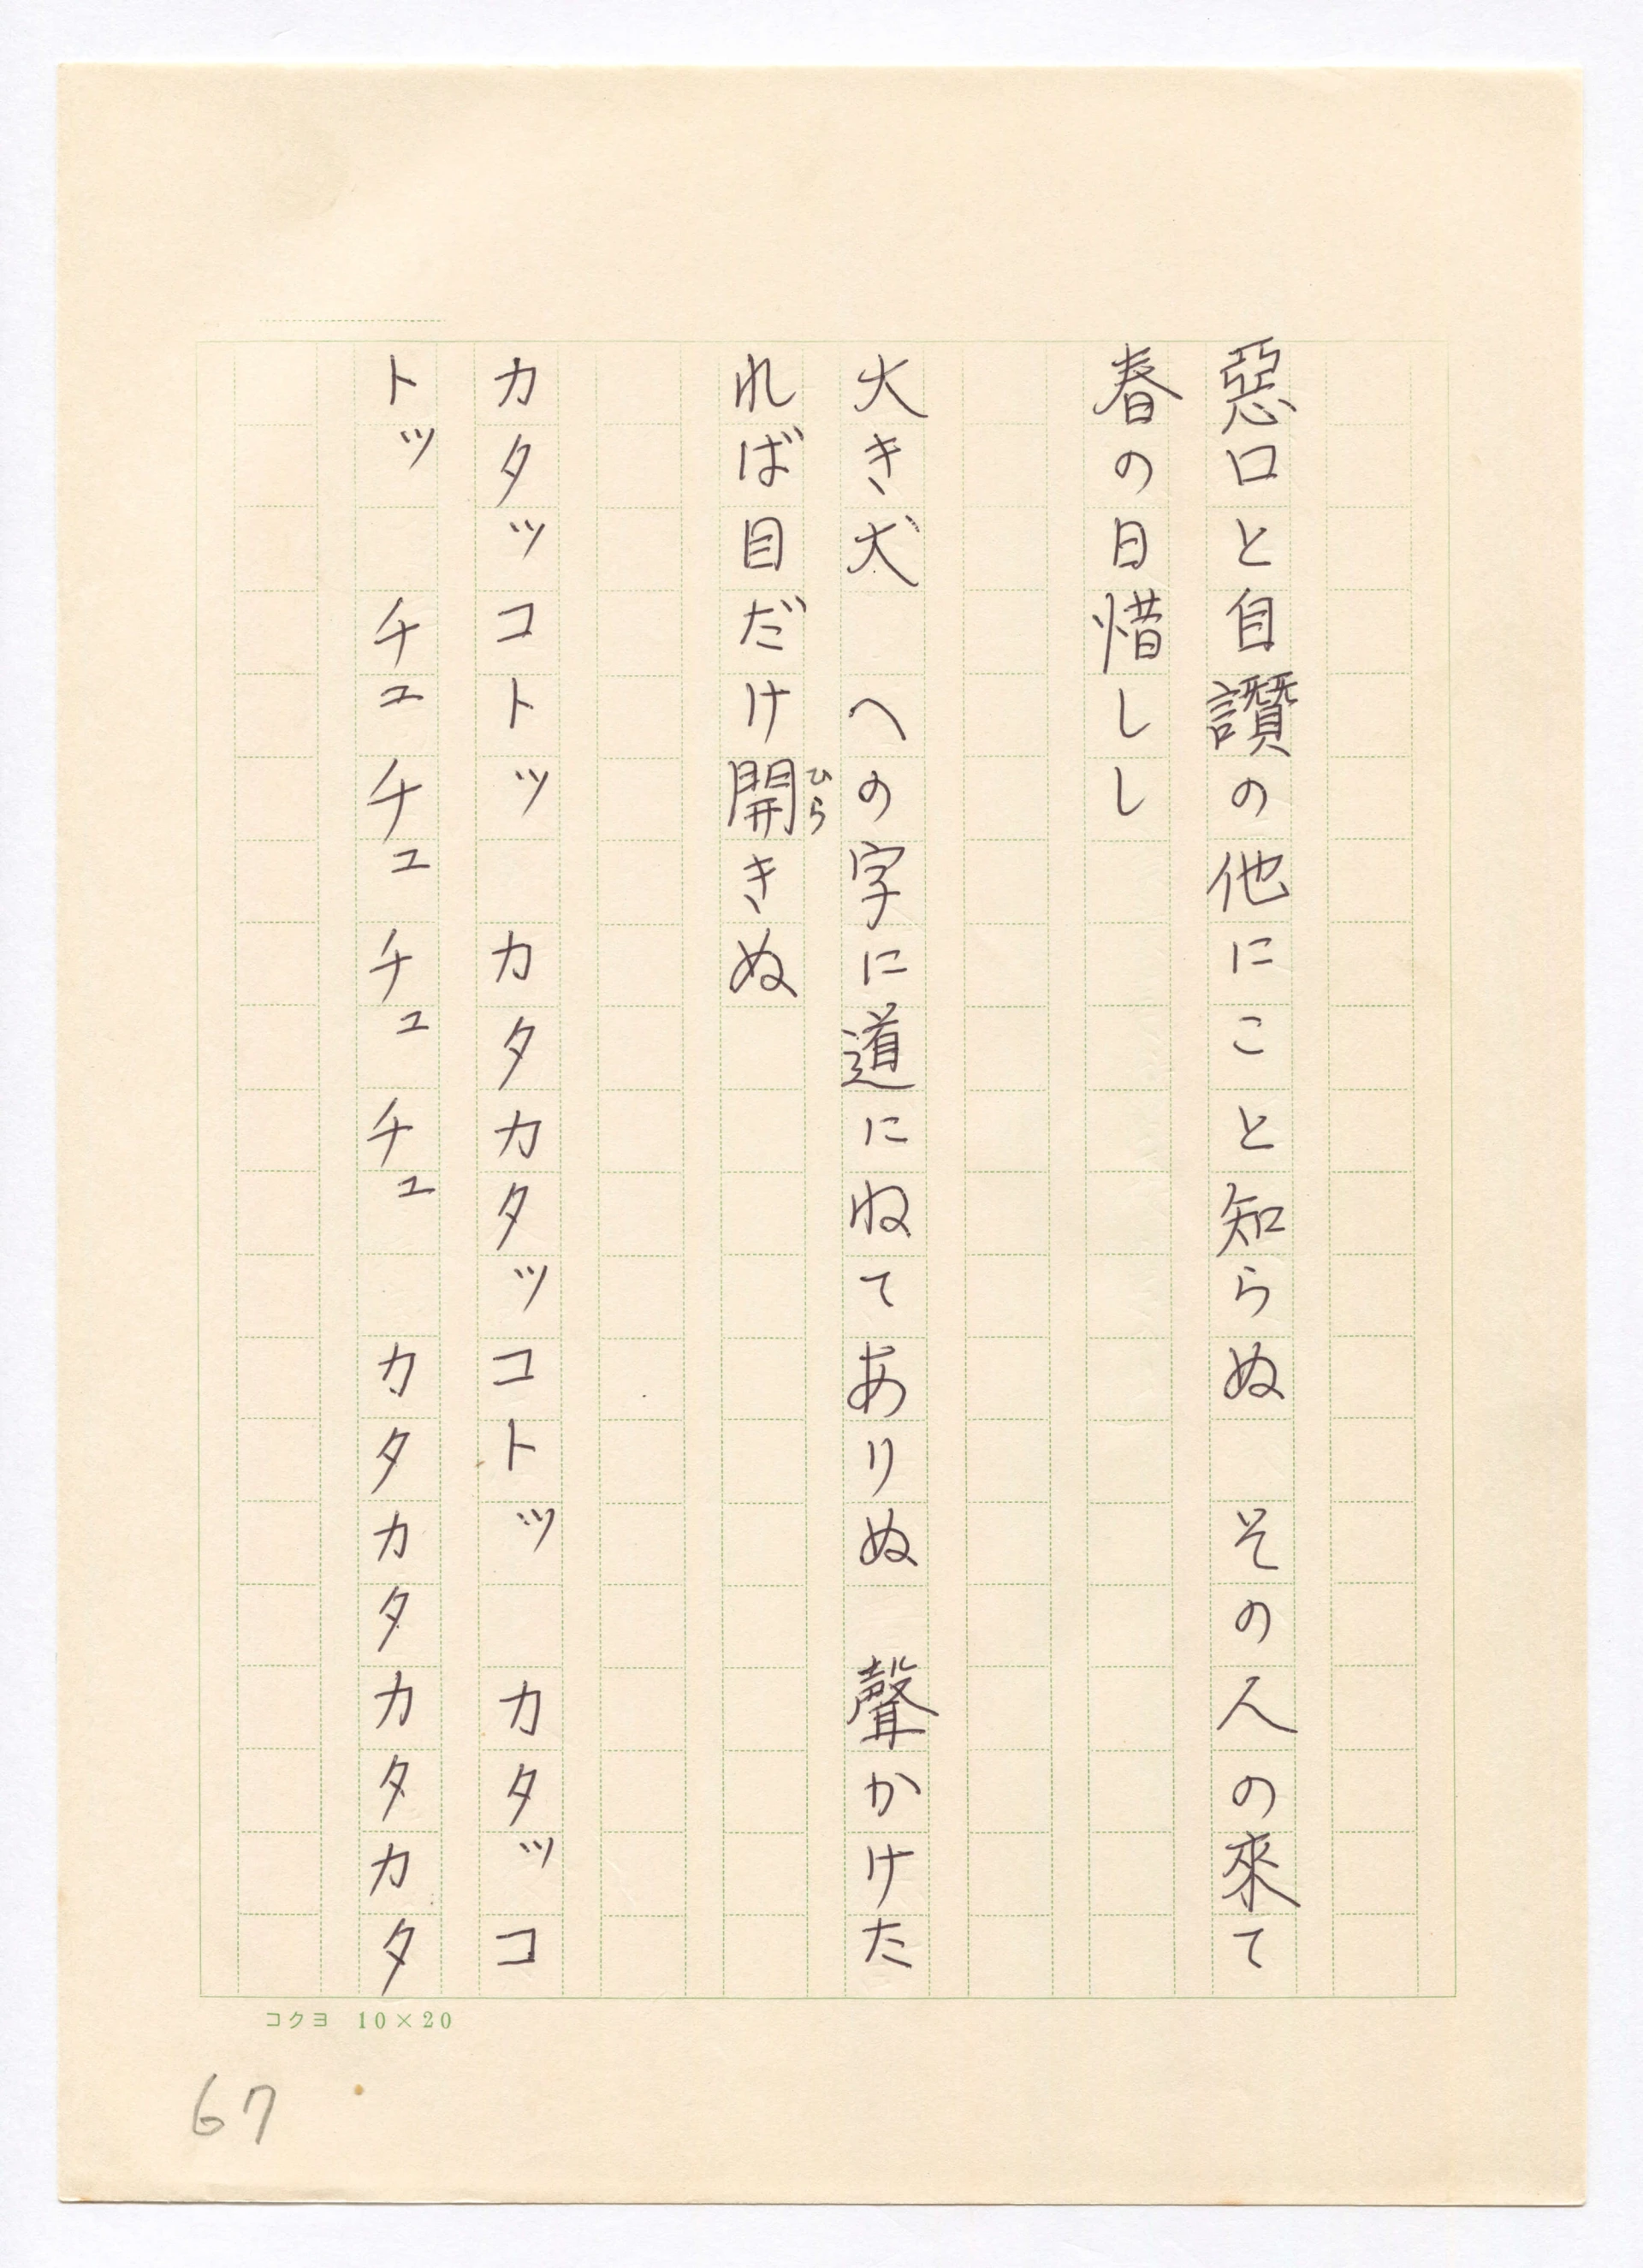 惡口と自讃の他にこと知らぬ　その人の來て
春の日惜しし
大き犬　への字に道にねてありぬ　聲かけた
れば目だけ開きぬ
ひら
カタッコトッ　カタカタッコトッ　カタッコ
トッ　チュチュチュチュ　カタカタカタカタ
コクヨ　10×20
67